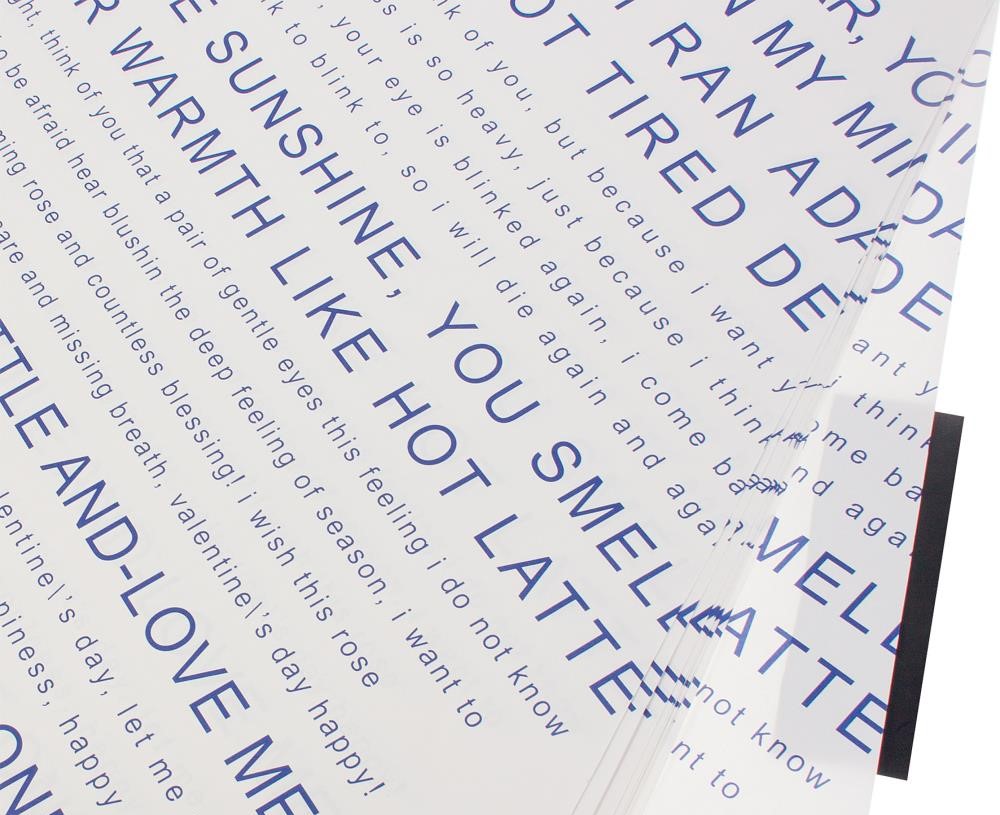 YO
MY MIN
RAN ADA
OT TIRED DE
of you, but because i want
is so heavy, just because i think
your eye is blinked again, i come ba
to blink to, so i will die again and aga
SUNSHINE, YOU SMEL
WARMTH LIKE HOT LATTE
think of you that a pair of gentle eyes this feeling i do not know
be afraid hear blushin the deep feeling of season, i want to
rose and countless blessing! i wish this rose
care and missing breath, valentine\'s day happy!
TTLE AND-LOVE ME
lentine\'s day, let me
piness, happy
DE
ant y
think
ome ba
nd aga
MELL
ATTE
not know
nt to